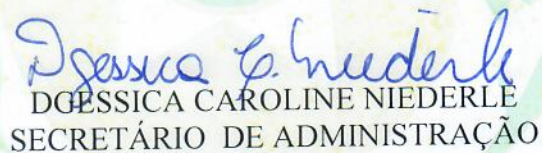 Dgessica C. Niederle
DGESSICA CAROLINE NIEDERLE
SECRETÁRIO DE ADMINISTRAÇÃO